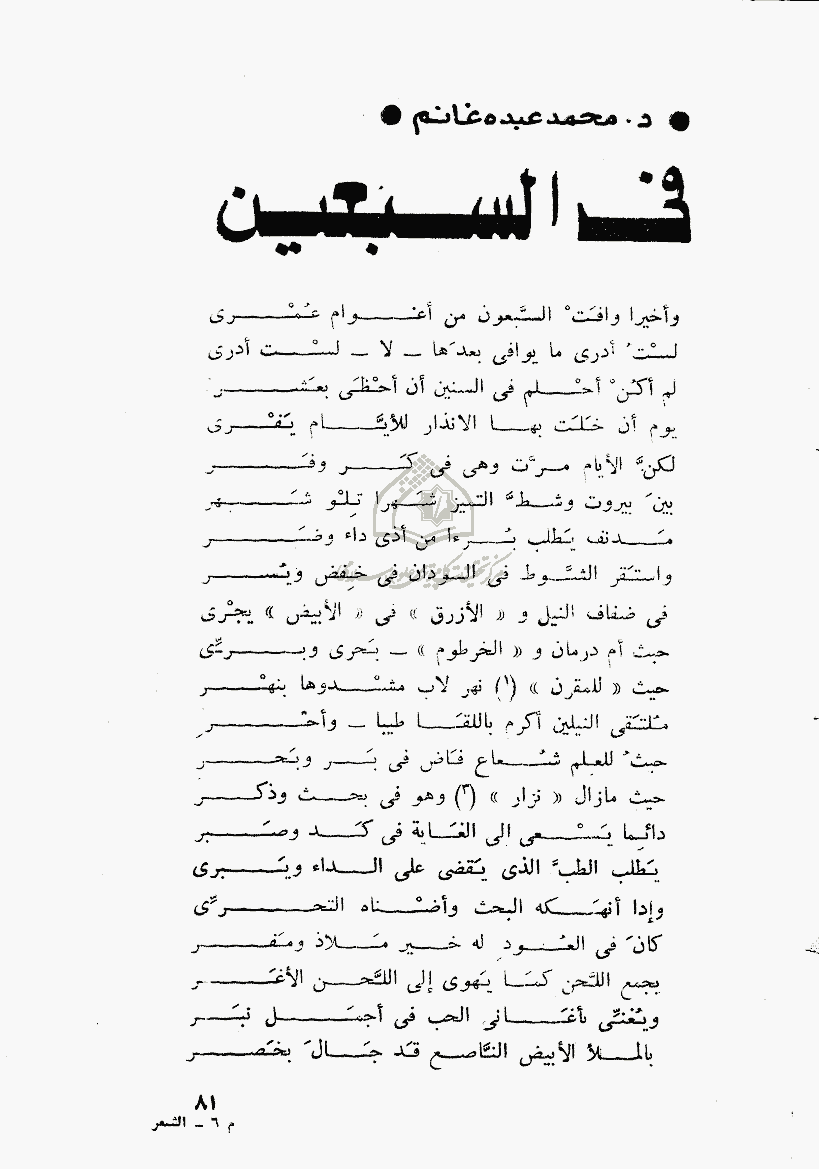 ● د. محمد عبده غانم ●
فى السبعين
وأخيرا وافَتْ السَّبعون من أعْوام عُمْرى
لسْتُ أدرى ما يوافى بعدَها ـ لا ـ لسْت أدرى
لم أكنْ أحْلم فى السنين أن أحْظَى بعَشر
يوم أن خلَت بها الانذار للأيَّام يَفْرى
لكنَّ الأيام مرَّت وهى فى كَر وفَر
بينَ بيروت وشطَّ التيز شَهرا تِلْو شَهر
مَدنف يَطلب بُرءا من أذى داء وضَر
واستَقر الشَّوط فى السودان فى خفض ويُسر
فى ضفاف النيل و « الأزرق » فى « الأبيض » يجْرى
حيث أم درمان و « الخرطوم » ـ بَحرى وبَرِّى
حيث « للمقرن » (١) نهر لاب مشْدوها بنهْر
مُلتَقى النيلين أكرم باللقَا طيبا ـ وأحْر
حيثُ للعلم شُعاع فَاض فى بَر وبَحر
حيث مازال « نزار » (٢) وهو فى بحث وذكر
دائما يَسْعى الى الغَاية فى كَد وصَبر
يَطلب الطبَّ الذى يَقضى على الداء ويَبرى
وإدا أنهَكه البحث وأضْناه التحرِّى
كانَ فى العُود له خير مَلاذ ومَفر
يجمع اللَّحن كمَا يَهوى إلى اللَّحن الأغَر
ويُغنِّى بأغَانى الحب فى أجمَل نبَر
بالملأ الأبيض النَّاصع قَد جَالَ بخَصر
٨١
م ٦ ـ الشعر